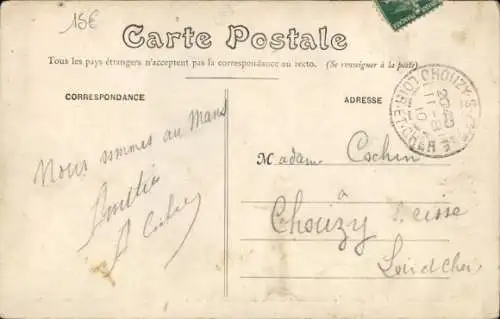 15€
Carte Postale
Tous les pays étrangers n'acceptent pas la correspondance au recto. (Se renseigner à la poste)
CORRESPONDANCE
ADRESSE
CHOUZY-S-CISSE
LOIR-ET-CHER
Nous sommes au Mans
Madame Cochin
à
Chouzy s cisse
Loir et Cher